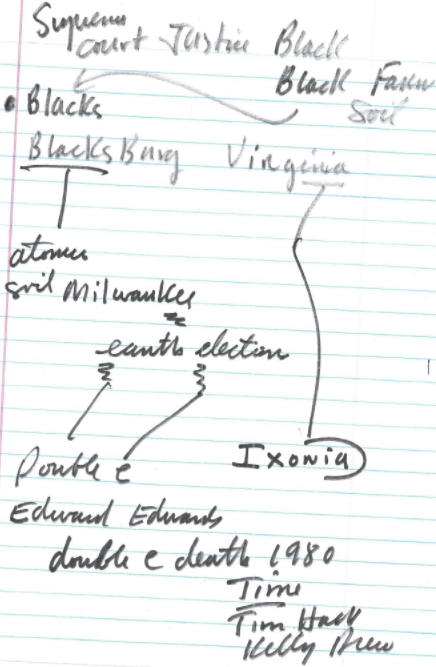 Supreme
Court Justice Black
Black Farm
Soil
• Blacks
BlacksBurg Virginia
atomes
soil Milwaukee
earth election
Double e
Ixonia
Edward Edwards
double e death 1980
Time
Tim Hack
Kelly Drew